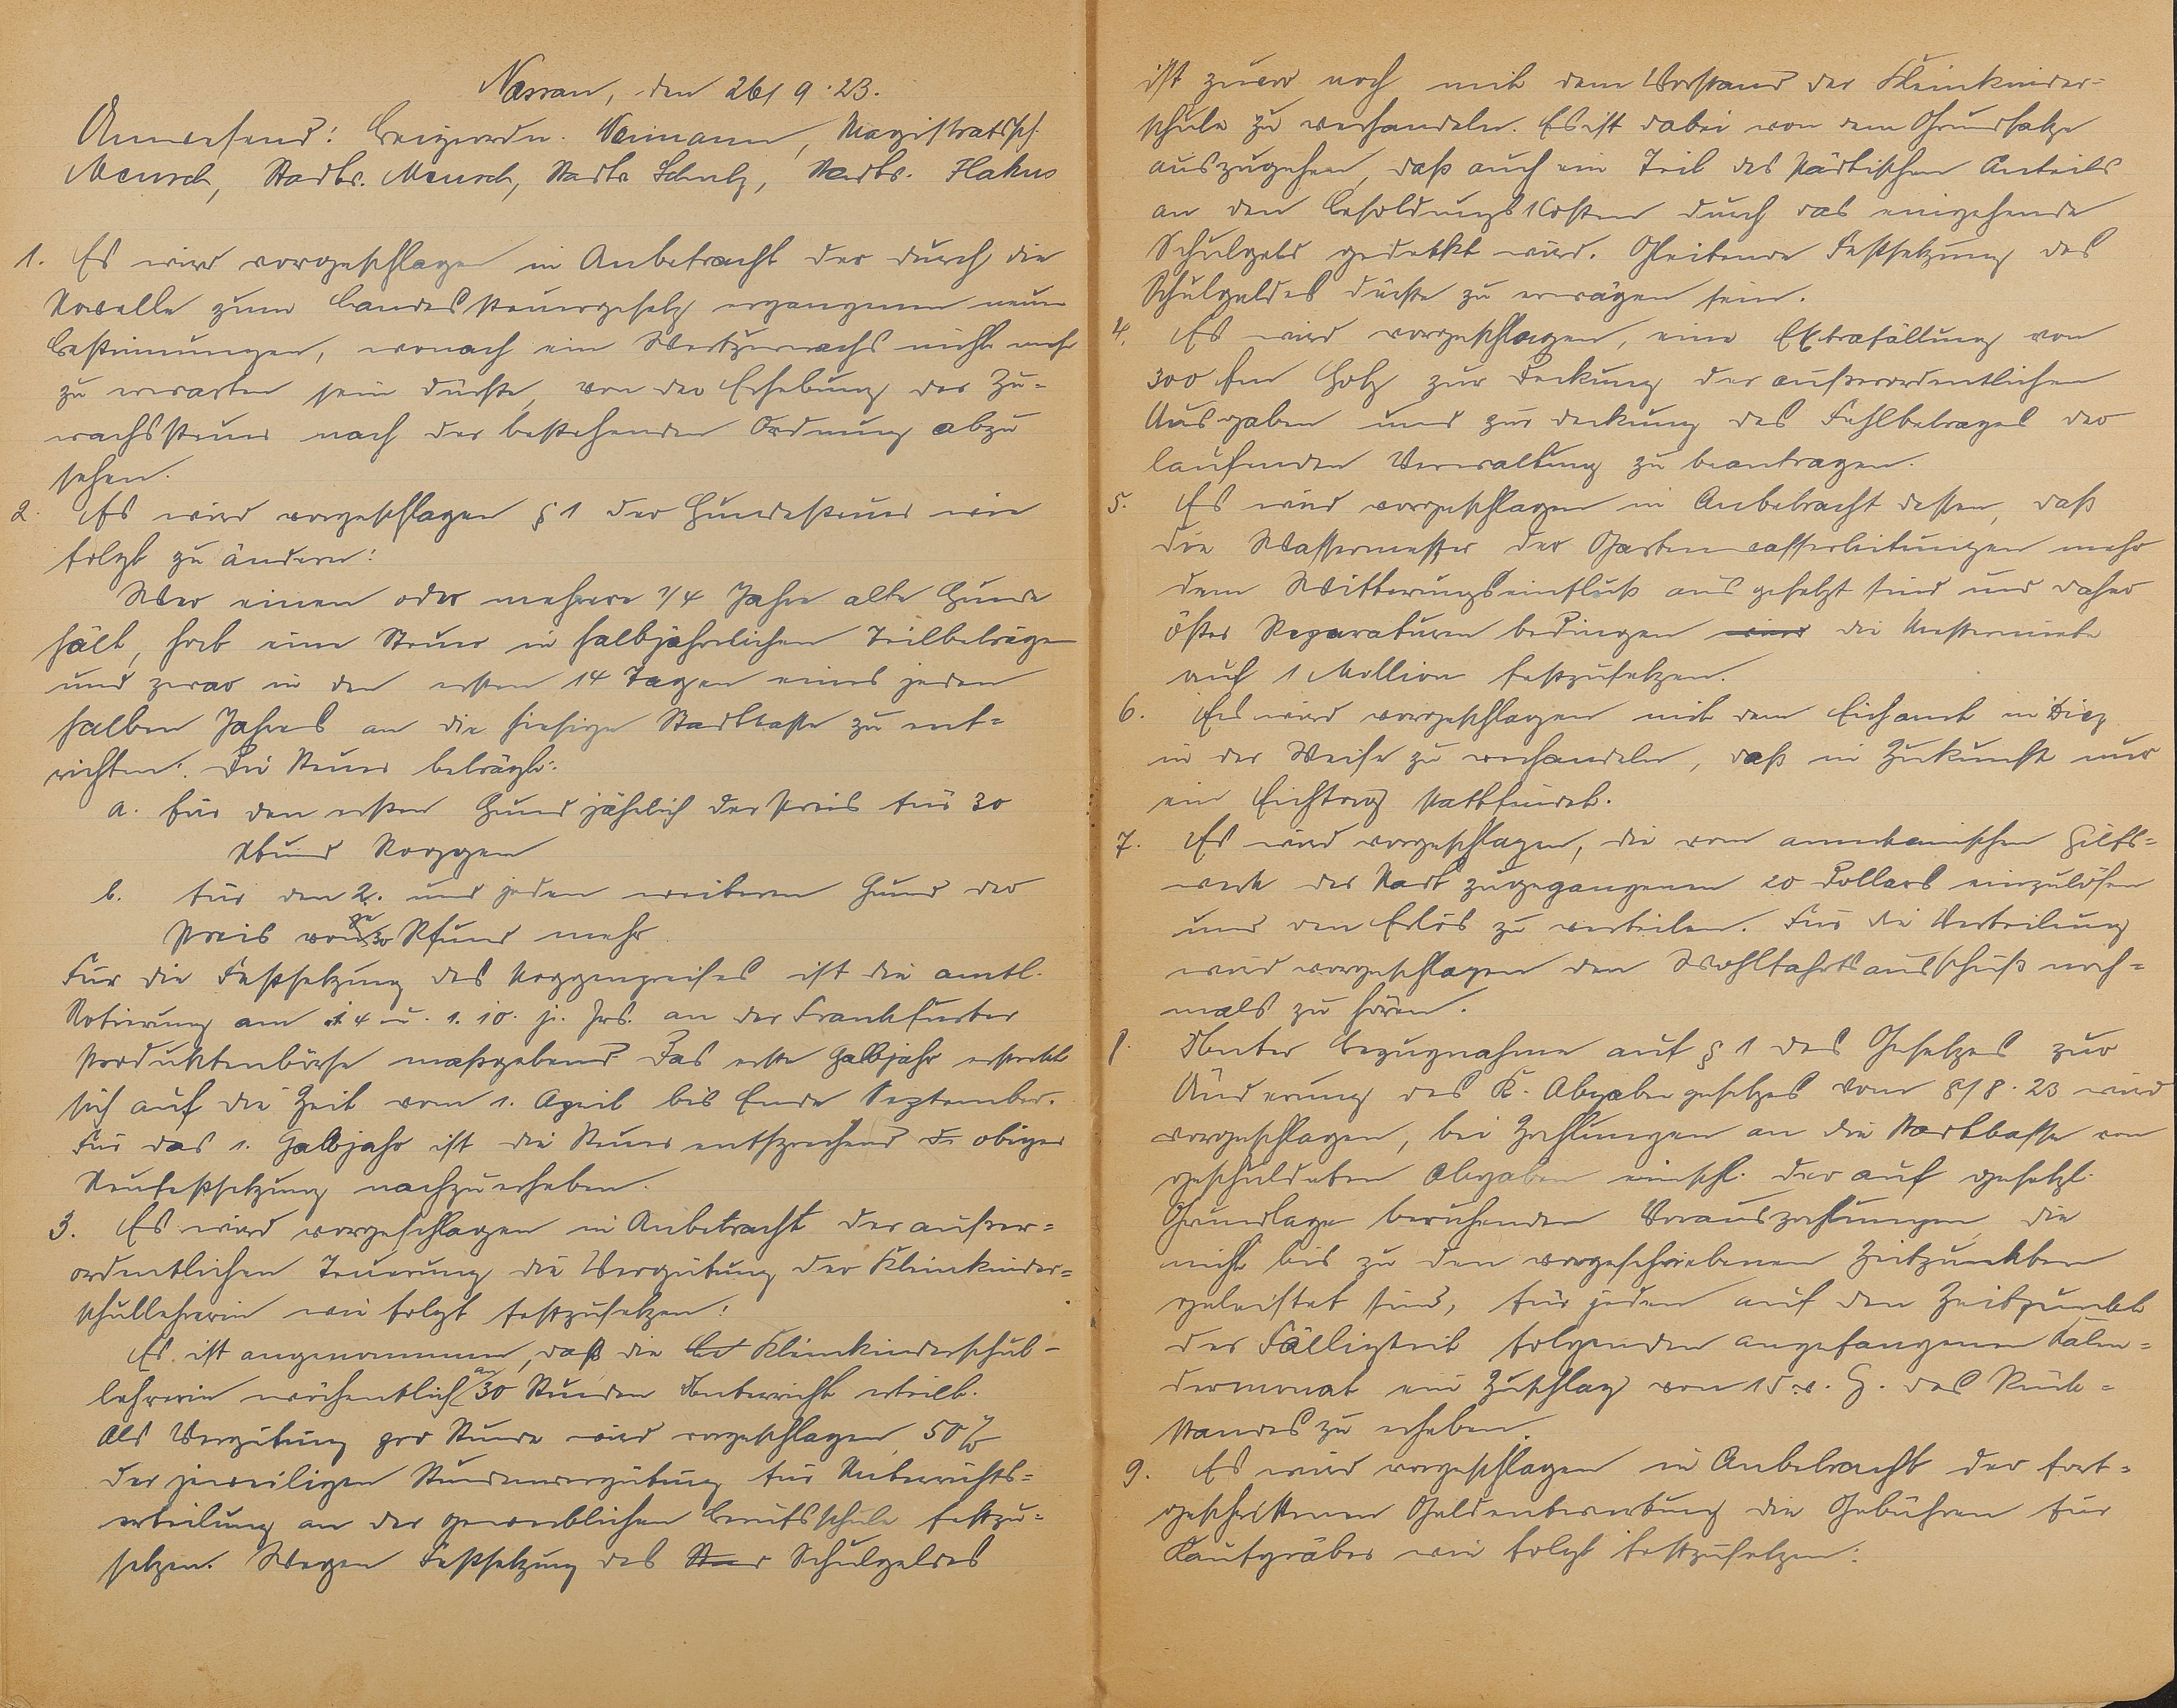 Nassau, den 26/9.23.
Anwesend: Beigeordn. Neumann, Magistratssch.
Meusch, Stadtv. Meusch, Stadtv Schulz, Stadtv. Flakus
1. Es wird vorgeschlagen in Anbetracht der durch die
Novelle zum Landessteuergesetz ergangenen neuen
Bestimmungen, wonach ein Wertzuwachs nicht mehr
zu erwarten sein dürfte, von der Erhebung der Zu-
wachssteuer nach der bestehenden Ordnung abzu
sehen.
2. Es wird vorgeschlagen § 1 der Hundesteuer wie
folgt zu ändern:
Wer einen oder mehrere 1/4 Jahr alte Hunde
hält, hat eine Steuer in halbjährlichen Teilbeträgen
und zwar in den ersten 14 Tagen eines jeden
halben Jahres an die hiesige Stadtkasse zu ent-
richten. Die Steuer beträgt:
a. für den ersten Hund jährlich der Preis für 30
Pfund Roggen
b. für den 2. und jeden weiteren Hund der
Preis von je 30 Pfund mehr.
Für die Festsetzung des Roggenpreises ist die amtl.
Notierung am 1. 4 u. 1. 10. j. Jrs. an der Frankfurter
Produktenbörse maßgebend. Das erste Halbjahr erstreckt
sich auf die Zeit vom 1. April bis Ende September.
Für das 1. Halbjahr ist die Steuer entsprechend obiger
Neufestsetzung nachzuerheben.
3. Es wird vorgeschlagen in Anbetracht der außer-
ordentlichen Teuerung die Vergütung der Kleinkinder-
schullehrerin wie folgt festzusetzen:
Es ist angenommen, daß die Kleinkinderschul-
lehrerin wöchentlich an 30 Stunden Unterricht erteilt.
Als Vergütung pro Stunde wird vorgeschlagen, 50 %
der jeweiligen Stundenvergütung für Unterrichts-
erteilung an der gewerblichen Berufsschule festzu-
setzen. Wegen Festsetzung des Schulgeldes
ist zuvor noch mit dem Vorstand der Kleinkinder-
schule zu verhandeln. Es ist dabei von dem Grundsatze
auszugehen, daß auch ein Teil des städtischen Anteils
an den Besoldungskosten durch das eingehende
Schulgeld gedeckt wird. Gleitende Festsetzung des
Schulgeldes dürfte zu erwägen sein.
4. Es wird vorgeschlagen, eine Extrafällung von
300 fm Holz zur Deckung der außerordentlichen
Ausgaben und zur Deckung des Fehlbetrages der
laufenden Verwaltung zu beantragen.
5. Es wird vorgeschlagen in Anbetracht dessen, daß
die Wassermesser der Gartenwasserleitungen mehr
dem Witterungseinfluß ausgesetzt sind und daher
öfter Reparaturen bedingen wird die Messermiete
auf 1 Million festzusetzen.
6. Es wird vorgeschlagen mit dem Eichamt in Diez
in der Weise zu verhandeln, daß in Zukunft nur
ein Eichtag stattfindet.
7. Es wird vorgeschlagen, die vom amerikanischen Hilfs-
werk der Stadt zugegangenen 20 Dollars einzulösen
und den Erlös zu verteilen. Für die Verteilung
wird vorgeschlagen den Wohlfahrtsausschuß noch-
mals zu hören.
8. Unter Bezugnahme auf § 1 des Gesetzes zur
Änderung des K. Abgabengesetzes vom 8/8.23 wird
vorgeschlagen, bei Zahlungen an die Stadtkasse von
geschuldeten Abgaben einschl. der auf gesetzl.
Grundlage beruhenden Vorauszahlungen, die
nicht bis zu den vorgeschriebenen Zeitpunkten
geleistet sind, für jeden auf den Zeitpunkt
der Fälligkeit folgenden angefangenen Kalen-
dermonat ein Zuschlag von 15 v. H. des Rück-
standes zu erheben.
9. Es wird vorgeschlagen in Anbetracht der fort-
geschrittenen Geldentwertung die Gebühren für
Kaufgräber wie folgt festzusetzen: